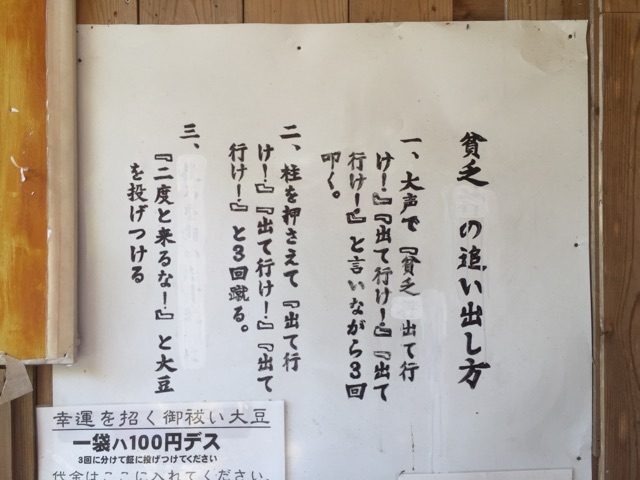 貧乏 の追い出し方
一、大声で『貧乏 出て行
け!』『出て行け!』『出て
行け!』と言いながら3回
叩く。
二、柱を押さえて『出て行
け!』『出て行け!』『出て
行け!』と3回蹴る。
三、
『二度と来るな!』と大豆
を投げつける
幸運を招く御祓い大豆
一袋ハ100円デス
3回に分けて鉦に投げつけてください
代金はここに入れてください。